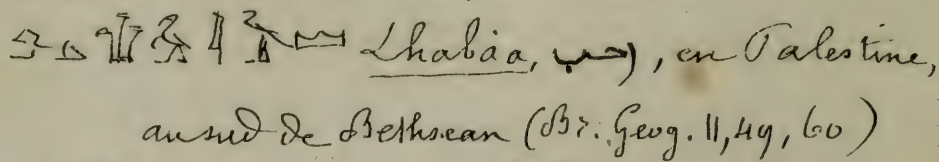 Lhabàa, رحب, en Palestine,
au sud de Bethsean (Br. Geog. II, 49, 60)